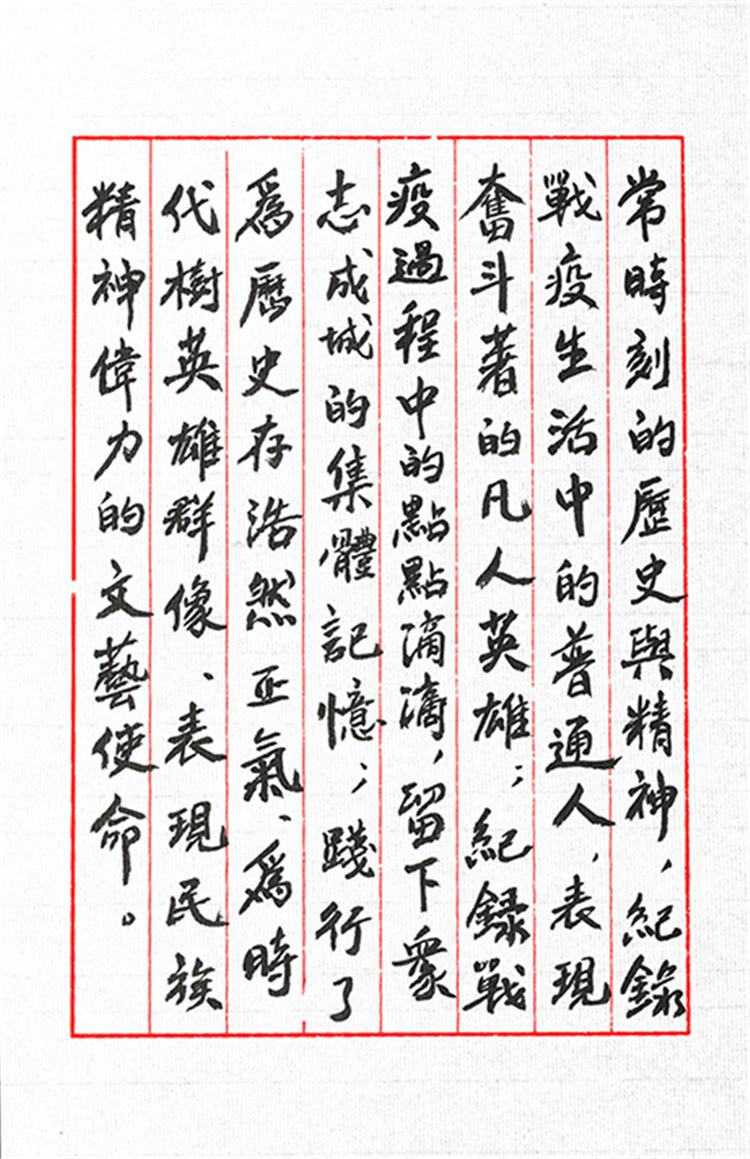 常時刻的歷史與精神，紀錄
戰疫生活中的普通人，表現
奮斗著的凡人英雄；紀錄戰
疫過程中的點點滴滴，留下衆
志成城的集體記憶；踐行了
爲歷史存浩然正氣、爲時
代樹英雄群像、表現民族
精神偉力的文藝使命。